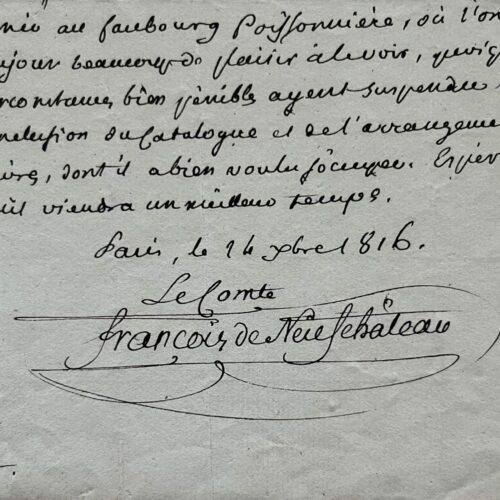 née au faubourg Poissonnière, où l'on
ujour beaucoup de plaisir à le voir, quoique
rconstances bien pénibles ayent suspendu
nclusion du Catalogue et de l'arrangeme
dont il a bien voulu s'occuper. Espér
u'il viendra un meilleur temps.
Paris, le 24 xbre 1816.
Le Comte
françois de Neufchâteau